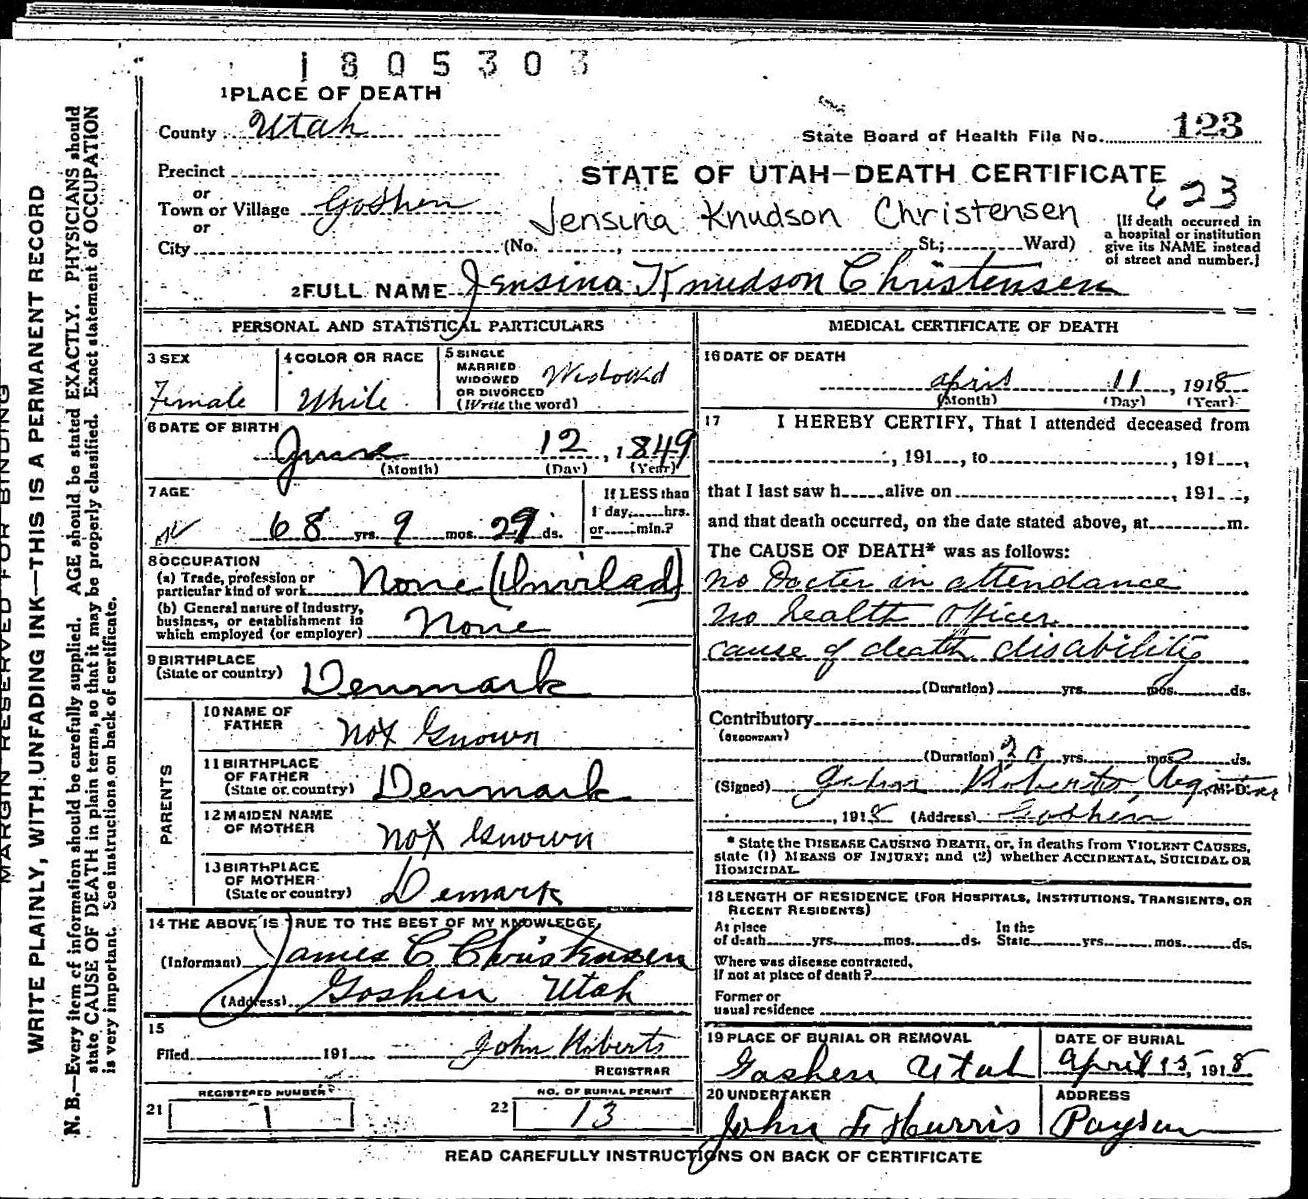 1805303
1 PLACE OF DEATH
County Utah
State Board of Health File No. 123
Precinct
STATE OF UTAH—DEATH CERTIFICATE
or
Town or Village Goshen
623
or
Jensina Knudson Christensen
City (No. St.; Ward)
[If death occurred in
a hospital or institution
give its NAME instead
of street and number.]
2 FULL NAME Jensina Knudson Christensen
PERSONAL AND STATISTICAL PARTICULARS
3 SEX
Female
4 COLOR OR RACE
White
5 SINGLE
MARRIED
WIDOWED
OR DIVORCED
(Write the word)
Widowed
6 DATE OF BIRTH
June 12, 1849
(Month) (Day) (Year)
7 AGE
68 yrs. 9 mos. 29 ds.
If LESS than
1 day, hrs.
or min.?
8 OCCUPATION
(a) Trade, profession or
particular kind of work None (Invilad)
(b) General nature of Industry,
business, or establishment in
which employed (or employer) None
9 BIRTHPLACE
(State or country) Denmark
PARENTS
10 NAME OF
FATHER Not Known
11 BIRTHPLACE
OF FATHER
(State or country) Denmark
12 MAIDEN NAME
OF MOTHER Not Known
13 BIRTHPLACE
OF MOTHER
(State or country) Demark
14 THE ABOVE IS TRUE TO THE BEST OF MY KNOWLEDGE,
(Informant) James C Christensen
(Address) Goshen Utah
15
Filed 191 John Roberts
REGISTRAR
REGISTERED NUMBER
21 1
NO. OF BURIAL PERMIT
22 13
MEDICAL CERTIFICATE OF DEATH
16 DATE OF DEATH
April 11, 1918
(Month) (Day) (Year)
17 I HEREBY CERTIFY, That I attended deceased from
, 191 , to , 191 ,
that I last saw h alive on , 191 ,
and that death occurred, on the date stated above, at m.
The CAUSE OF DEATH* was as follows:
no Docter in attendance
no health officer
cause of death disability
(Duration) yrs. mos. ds.
Contributory
(SECONDARY)
(Duration) 20 yrs. mos. ds.
(Signed) John Roberts, Registrar M. D.
, 1918 (Address) Goshen
* State the DISEASE CAUSING DEATH, or, in deaths from VIOLENT CAUSES,
state (1) MEANS OF INJURY; and (2) whether ACCIDENTAL, SUICIDAL OR
HOMICIDAL.
18 LENGTH OF RESIDENCE (FOR HOSPITALS, INSTITUTIONS, TRANSIENTS, OR
RECENT RESIDENTS)
At place
of death yrs. mos. ds.
In the
State yrs. mos. ds.
Where was disease contracted,
If not at place of death?
Former or
usual residence
19 PLACE OF BURIAL OR REMOVAL
Goshen Utah
DATE OF BURIAL
April 15, 1918
20 UNDERTAKER
John F Hurris
ADDRESS
Payson
READ CAREFULLY INSTRUCTIONS ON BACK OF CERTIFICATE
MARGIN RESERVED FOR BINDING
WRITE PLAINLY, WITH UNFADING INK—THIS IS A PERMANENT RECORD
N. B.—Every item of information should be carefully supplied. AGE should be stated EXACTLY. PHYSICIANS should
state CAUSE OF DEATH in plain terms, so that it may be properly classified. Exact statement of OCCUPATION
is very important. See instructions on back of certificate.